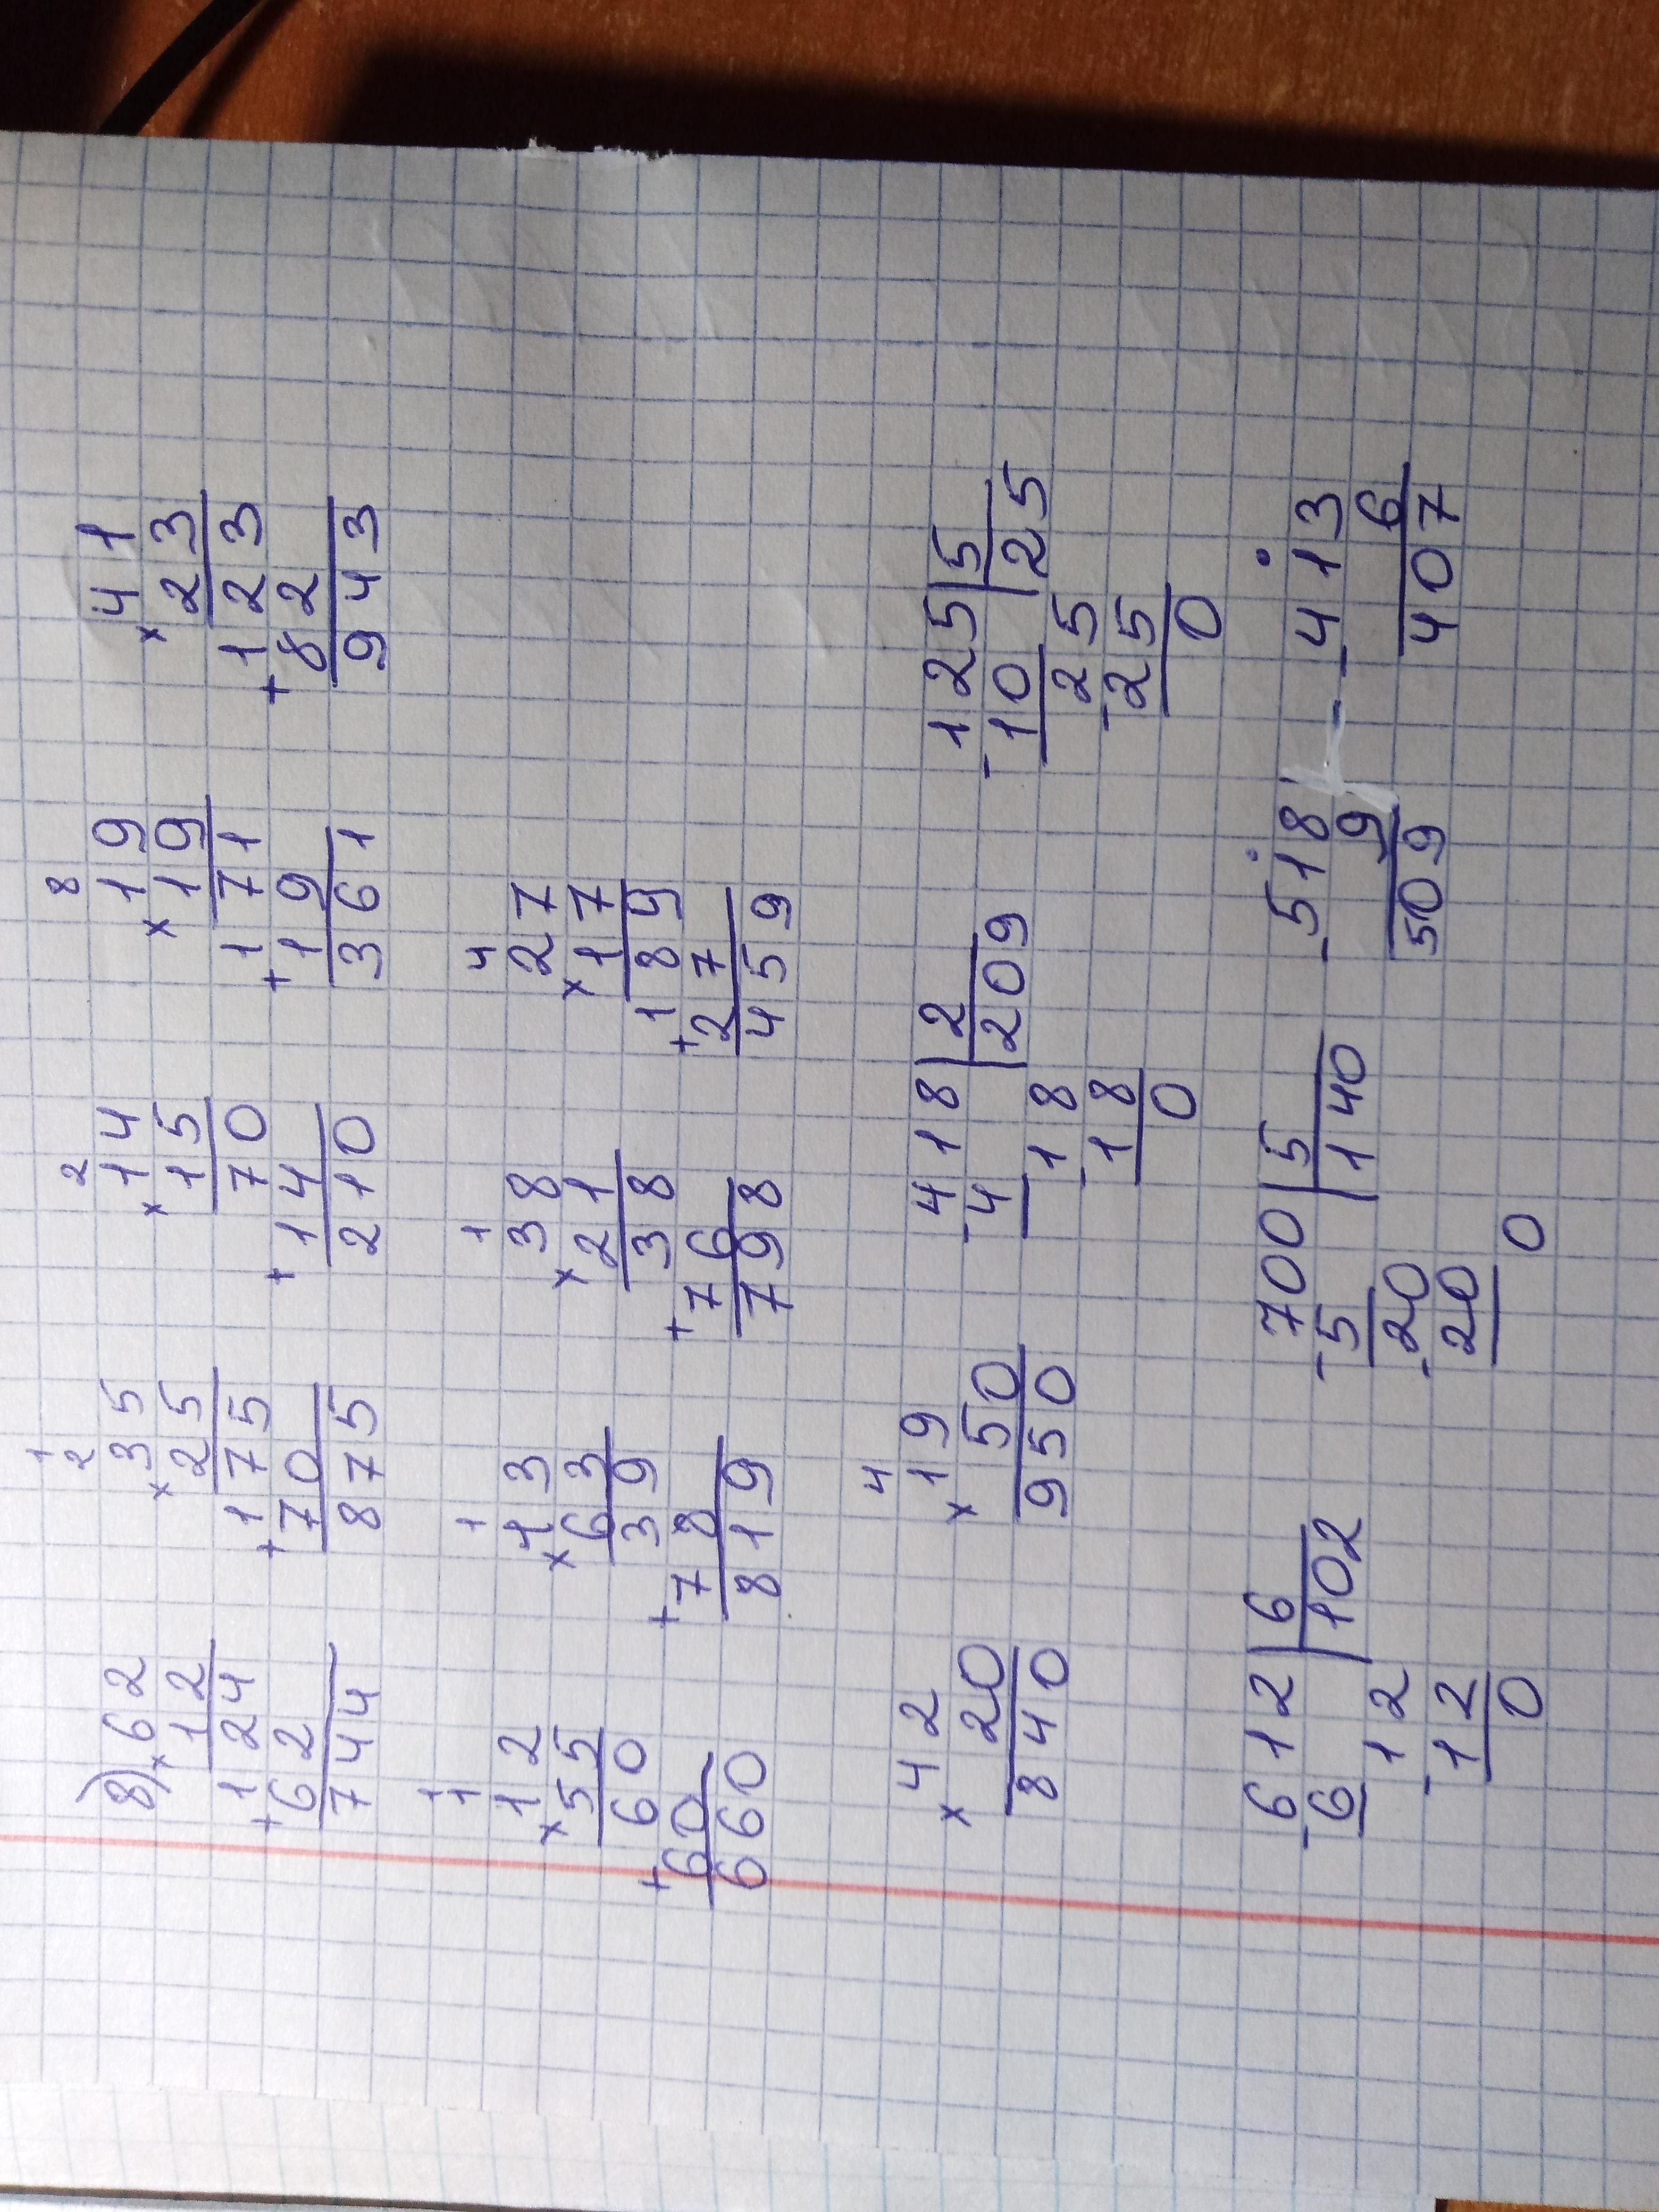 2 1 2 8
8) 62 35 14 19 41
× 12 × 25 × 15 × 19 × 23
124 175 70 171 123
+ 62 + 70 + 14 + 19 + 82
744 875 210 361 943
1 1 1 1 4
12 13 38 27
× 55 × 63 × 21 × 17
60 39 38 189
+ 60 + 78 + 76 + 27
660 819 798 459
4
42 19 418 | 2 125 | 5
× 20 × 50 - 4 | 209 - 10 | 25
840 950 18 25
- 18 - 25
0 0
612 | 6 700 | 5 - 518 - 413
- 6 | 102 - 5 | 140 9 6
12 20 509 407
- 12 - 20
0 0